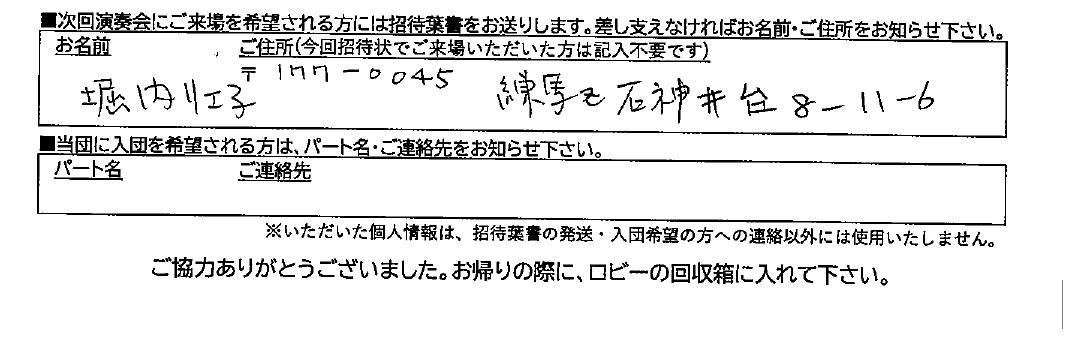 ■次回演奏会にご来場を希望される方には招待葉書をお送りします。差し支えなければお名前・ご住所をお知らせ下さい。
お名前 ご住所(今回招待状でご来場いただいた方は記入不要です)
〒177-0045
堀内リエ子 練馬区石神井台8-11-6
■当団に入団を希望される方は、パート名・ご連絡先をお知らせ下さい。
パート名 ご連絡先
※いただいた個人情報は、招待葉書の発送・入団希望の方への連絡以外には使用いたしません。
ご協力ありがとうございました。お帰りの際に、ロビーの回収箱に入れて下さい。